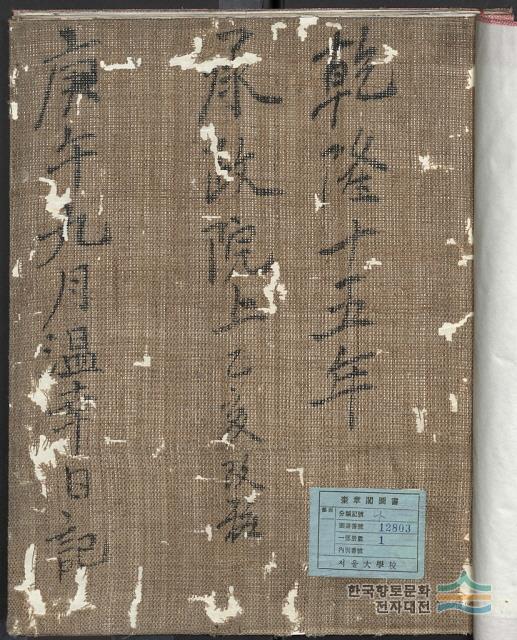 乾隆十五年
承政院上乙亥改粧
庚午九月温幸日記
奎章閣圖書
分類記號
圖書番號 12803
一部册數 1
內列番號
서울大學校
한국향토문화
전자대전